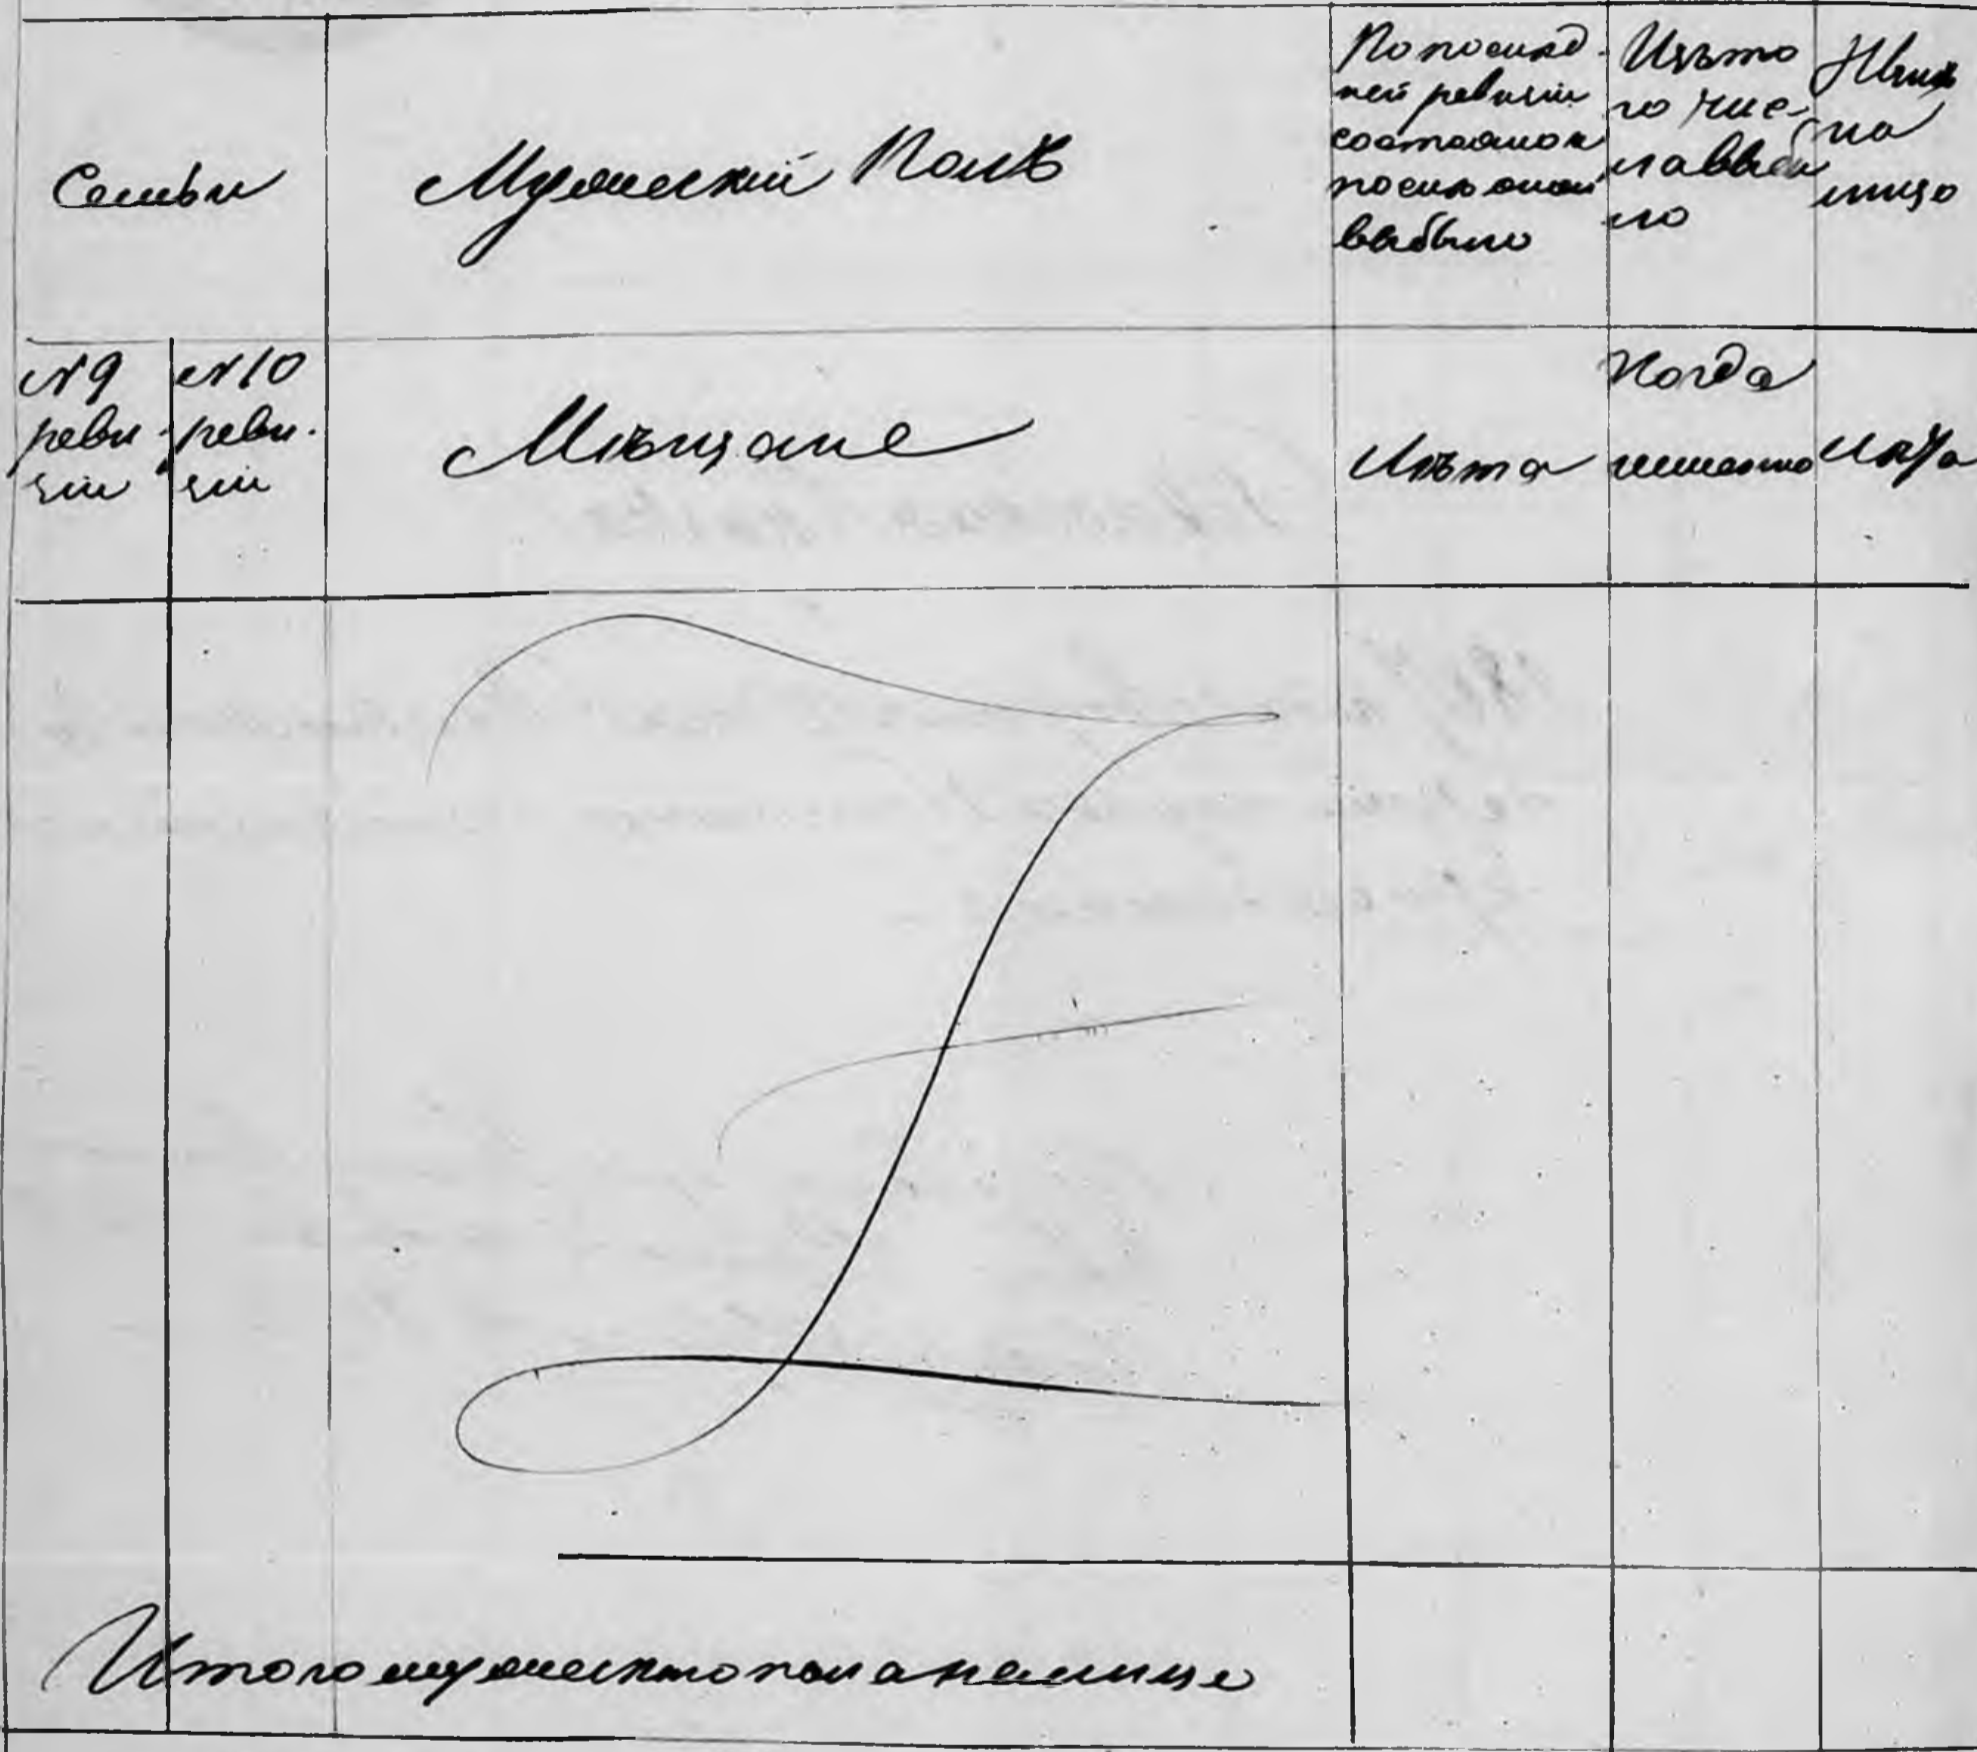 Семьи
Мужескій Полъ
По послед-
ней ревизіи
состояло и
после оной
выбыло
Изъ то
го чис-
ла выбы
ло
Ныне
на
лицо
№ 9
реви-
зіи
№ 10
реви-
зіи
Мѣщане
Лѣта
Когда
именно
Лѣта
Итого мужеского пола на лице